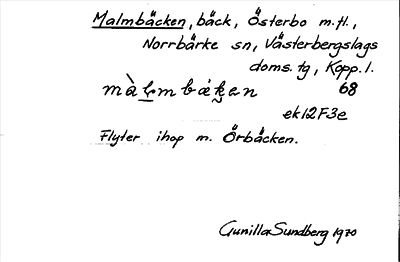 Malmbäcken, bäck, Österbo m.fl.,
Norrbärke sn, Västerbergslags
doms. tg, Kopp. l.
68
ek12F3e
Flyter ihop m. Örbäcken.
Gunilla Sundberg 1970